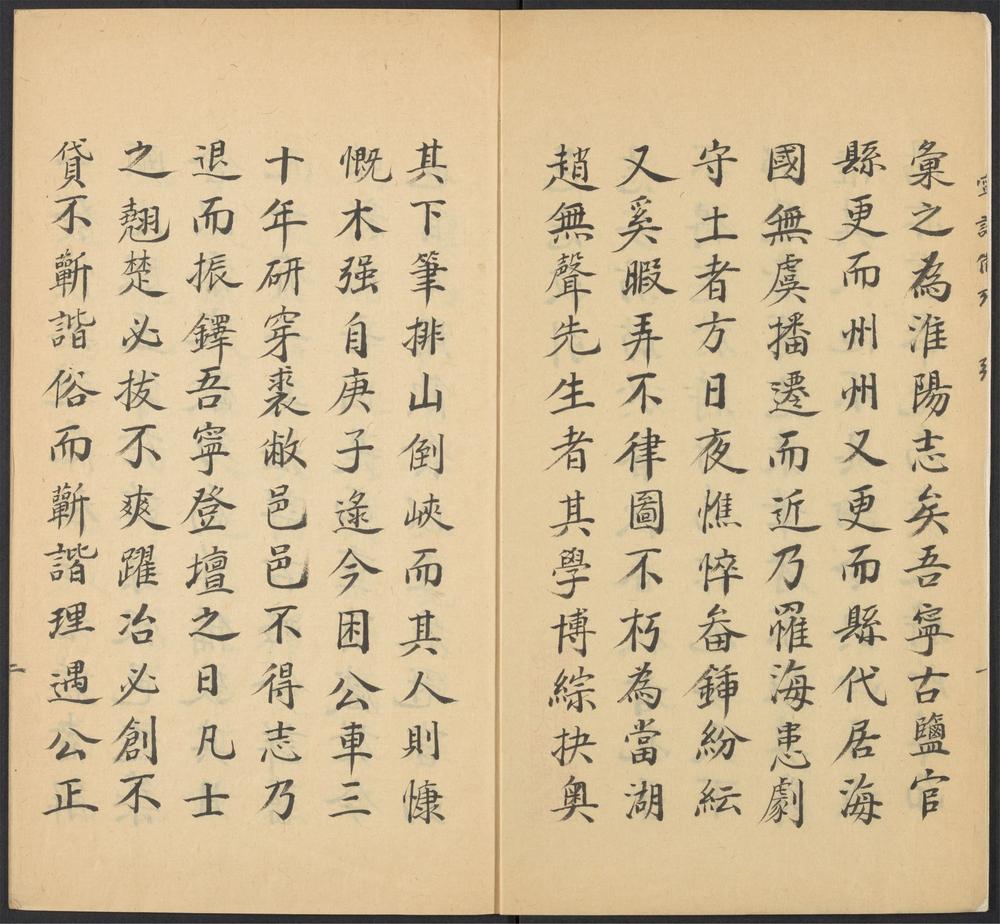 彙之為淮陽志矣吾寧古鹽官
縣更而州州又更而縣代居海
國無虞播遷而近乃罹海患劇
守土者方日夜憔悴畚鍤紛紜
又奚暇弄不律圖不朽為當湖
趙無聲先生者其學博綜抉奥
一
其下筆排山倒峽而其人則慷
慨木强自庚子逺今困公車三
十年研穿裘敝邑邑不得志乃
退而振鐸吾寧登壇之日凡士
之翹楚必拔不爽躍冶必創不
貸不蘄諧俗而蘄諧理遇公正
二